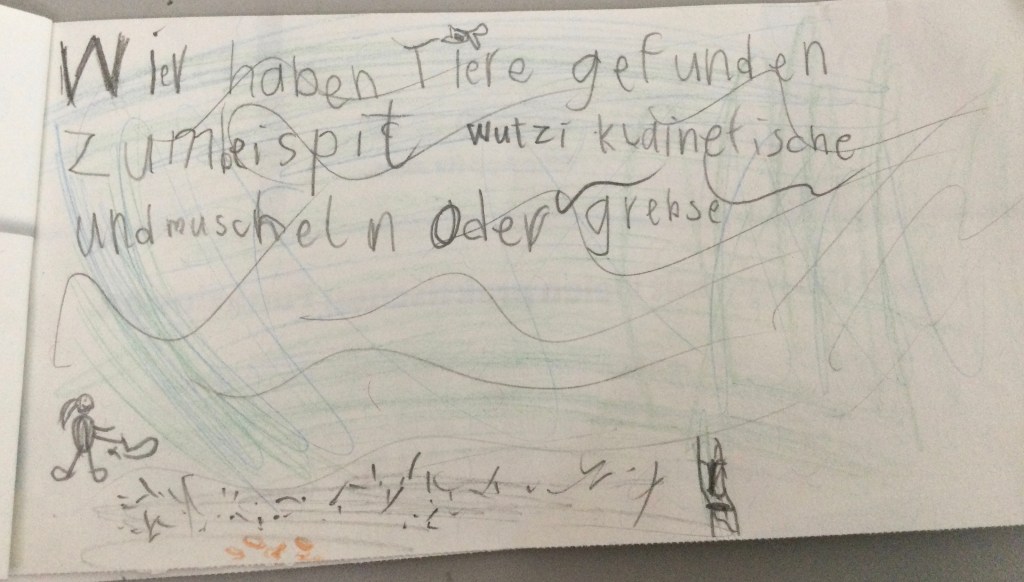 Wir haben Tiere gefunden
zumbeispit wutzi kudinetische
undmuscheln oder grebse